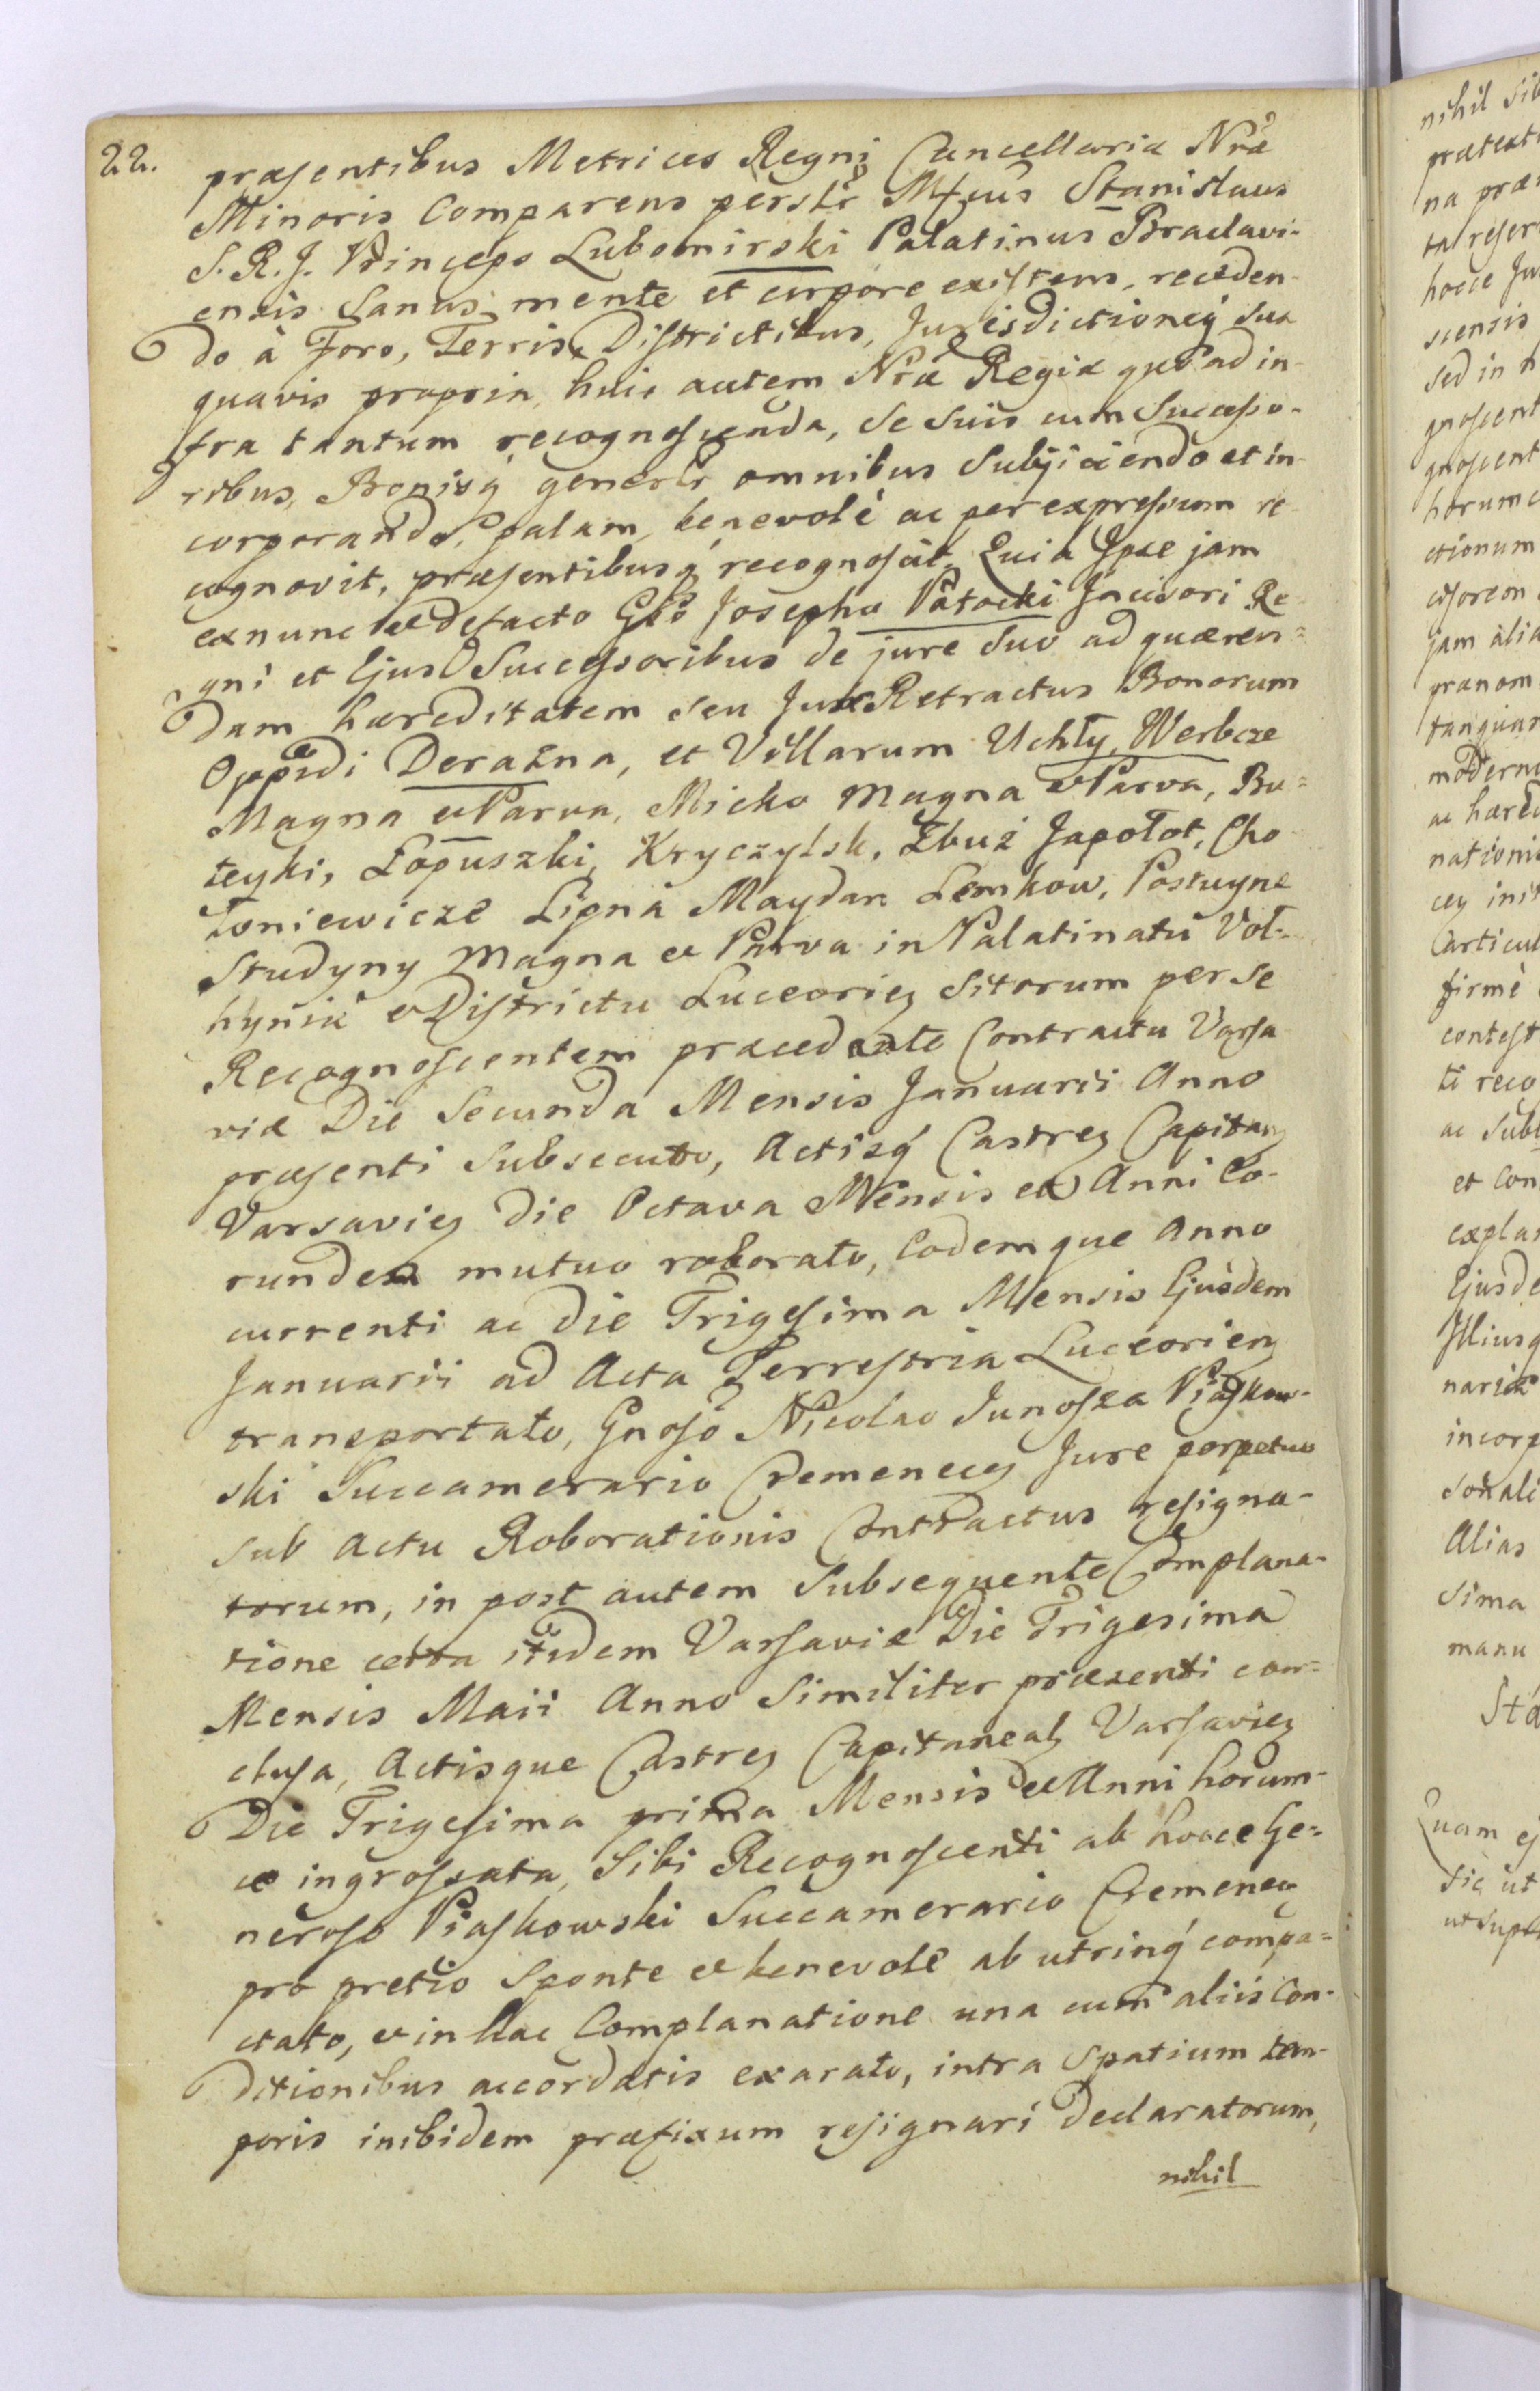 22.
præsentibus Metrices Regni Cancellariæ Nræ
Minoris Comparens persłr Mfcus Stanislaus
S. R. J. Princeps Lubomirski Palatinus Braclavi-
ensis Sanus mente et corpore existens, receden-
do à Foro, Terris, Districtibus, Jurisdictioneq́ sua
quavis propria, huic autem Nræ Regiæ quoad in-
fra tantum recognoscenda, se suis cum Successo-
ribus, Bonisq́ generlr omnibus Subjiciendo et in-
corporando, palam, benevolè ac per expressum re-
cognovit, præsentibusq́ recognoscit. Quia Ipse jam
ex nunc et de facto Gso Josepho Potocki Incisori Re-
gni et Ejus Successoribus de jure Suo ad quæren=
dam hæreditatem seu Jus Retractus Bonorum
Oppidi Derażna, et Villarum Uchły, Werbcze
Magna et Parva, Micko Magna et Parva, Bu=
teyki, Łopuszki, Kryczylsk, Zbuż Japołot, Cho-
łoniewicze Lipna Maydan Lemkow, Postuyne
Studyny Magna et Parva in Palatinatu Vol-
hyniæ et Districtu Luceorien sitorum per se
Recognoscentem præcedente Contractu Varsa
viæ Die Secunda Mensis Januarii Anno
præsenti Subsecuto, Actisq́ Castren Capitan
Varsavien die Octava Mensis et Anni Eo-
rundem mutuo roborato, Eodemque Anno
currenti ac die Trigesima Mensis Ejusdem
Januarii ad Acta Terrestria Luceorien
transportato, Gnoso Nicolao Junosza Piaskow-
ski Succamerario Cremenecen Jure perpetuo
sub Actu Roborationis Contractus resigna-
torum, in post autem Subsequente Complana-
tione certa itidem Varsaviæ Die Trigesima
Mensis Maii Anno Similiter præsenti con=
clusa, Actisque Castren Capitaneal Varsavien
Die Trigesima prima Mensis et Anni horum-
ce ingrossata, Sibi Recognoscenti ab hocce Ge=
neroso Piaskowski Succamerario Cremenen
pro pretio Sponte et benevolè ab utrinq́ compa=
ctato, et in hac Complanatione una cum aliis Con-
ditionibus accordatis exarato, intra Spatium tem-
poris inibidem præfixum resignari declaratorum,
nihil